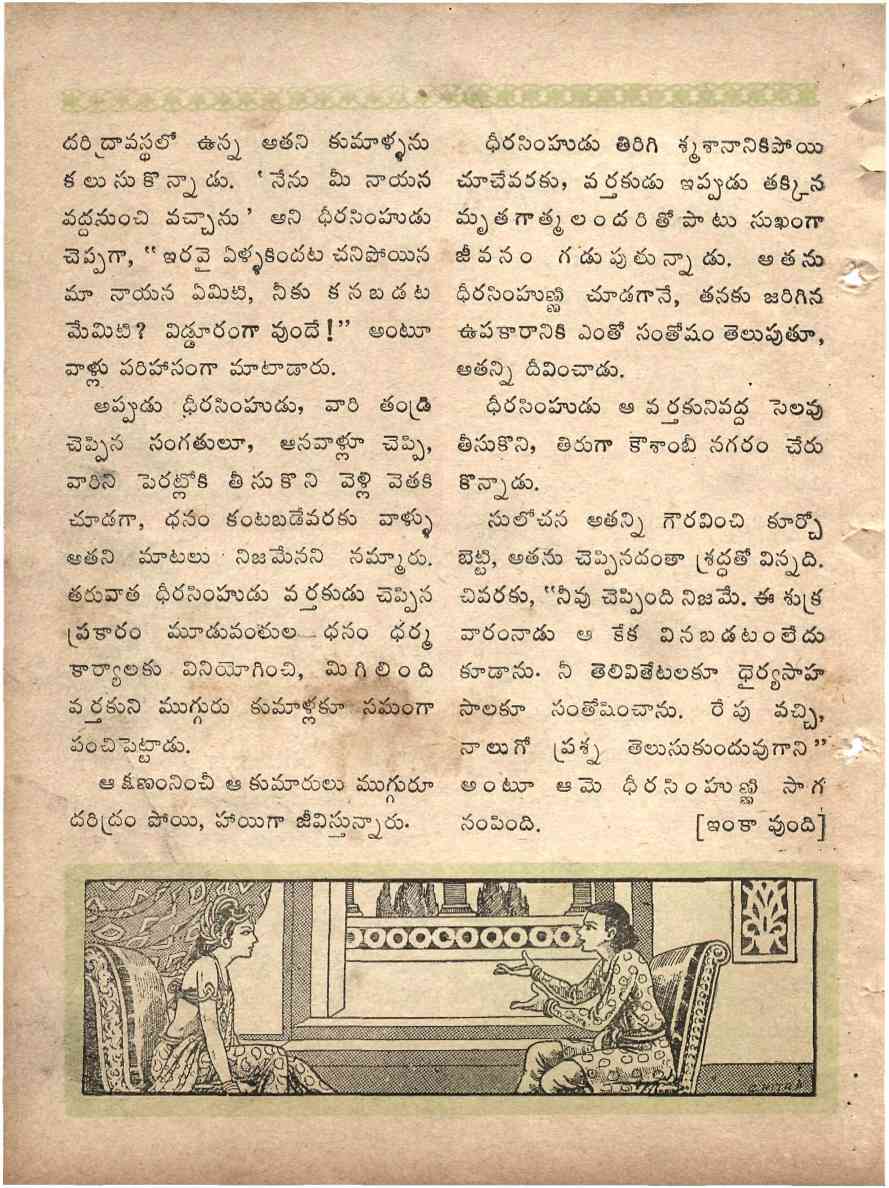 దరిద్రావస్థలో ఉన్న ఆతని కుమాళ్ళను
కలుసుకొన్నాడు. ‘నేను మీ నాయన
వద్దనుంచి వచ్చాను’ ఆని ధీరసింహుడు
చెప్పగా, “ఇరవై ఏళ్ళకిందట చనిపోయిన
మా నాయన ఏమిటి, నీకు కనబడట
మేమిటి? విడ్డూరంగా వుందే!” అంటూ
వాళ్లు పరిహాసంగా మాటాడారు.
అప్పుడు ధీరసింహుడు, వారి తండ్రి
చెప్పిన సంగతులూ, ఆనవాళ్లూ చెప్పి,
వారిని పెరట్లోకి తీసుకొని వెళ్లి వెతకి
చూడగా, ధనం కంటబడేవరకు వాళ్ళు
ఆతని మాటలు నిజమేనని నమ్మారు.
తరువాత ధీరసింహుడు వర్తకుడు చెప్పిన
ప్రకారం మూడువంతుల ధనం ధర్మ
కార్యాలకు వినియోగించి, మిగిలింది
వర్తకుని ముగ్గురు కుమాళ్లకూ సమంగా
పంచిపెట్టాడు.
ఆ క్షణంనించీ ఆ కుమారులు ముగ్గురూ
దరిద్రం పోయి, హాయిగా జీవిస్తున్నారు.
ధీరసింహుడు తిరిగి శ్మశానానికిపోయి
చూచేవరకు, వర్తకుడు ఇప్పుడు తక్కిన
మృతగాత్మలందరితోపాటు సుఖంగా
జీవనం గడుపుతున్నాడు. ఆతను
ధీరసింహుణ్ణి చూడగానే, తనకు జరిగిన
ఉపకారానికి ఎంతో సంతోషం తెలుపుతూ,
ఆతన్ని దీవించాడు.
ధీరసింహుడు ఆ వర్తకునివద్ద సెలవు
తీసుకొని, తిరుగా కౌశాంబీ నగరం చేరు
కొన్నాడు.
సులోచన అతన్ని గౌరవించి కూర్చో
బెట్టి, అతను చెప్పినదంతా శ్రద్ధతో విన్నది.
చివరకు, “నీవు చెప్పింది నిజమే. ఈ శుక్ర
వారంనాడు ఆ కేక వినబడటంలేదు
కూడాను. నీ తెలివితేటలకూ ధైర్యసాహ
సాలకూ సంతోషించాను. రేపు వచ్చి,
నాలుగో ప్రశ్న తెలుసుకుందువుగాని”
అంటూ ఆమె ధీరసింహుణ్ణి సాగ
నంపింది. [ఇంకా వుంది]
CHITRA